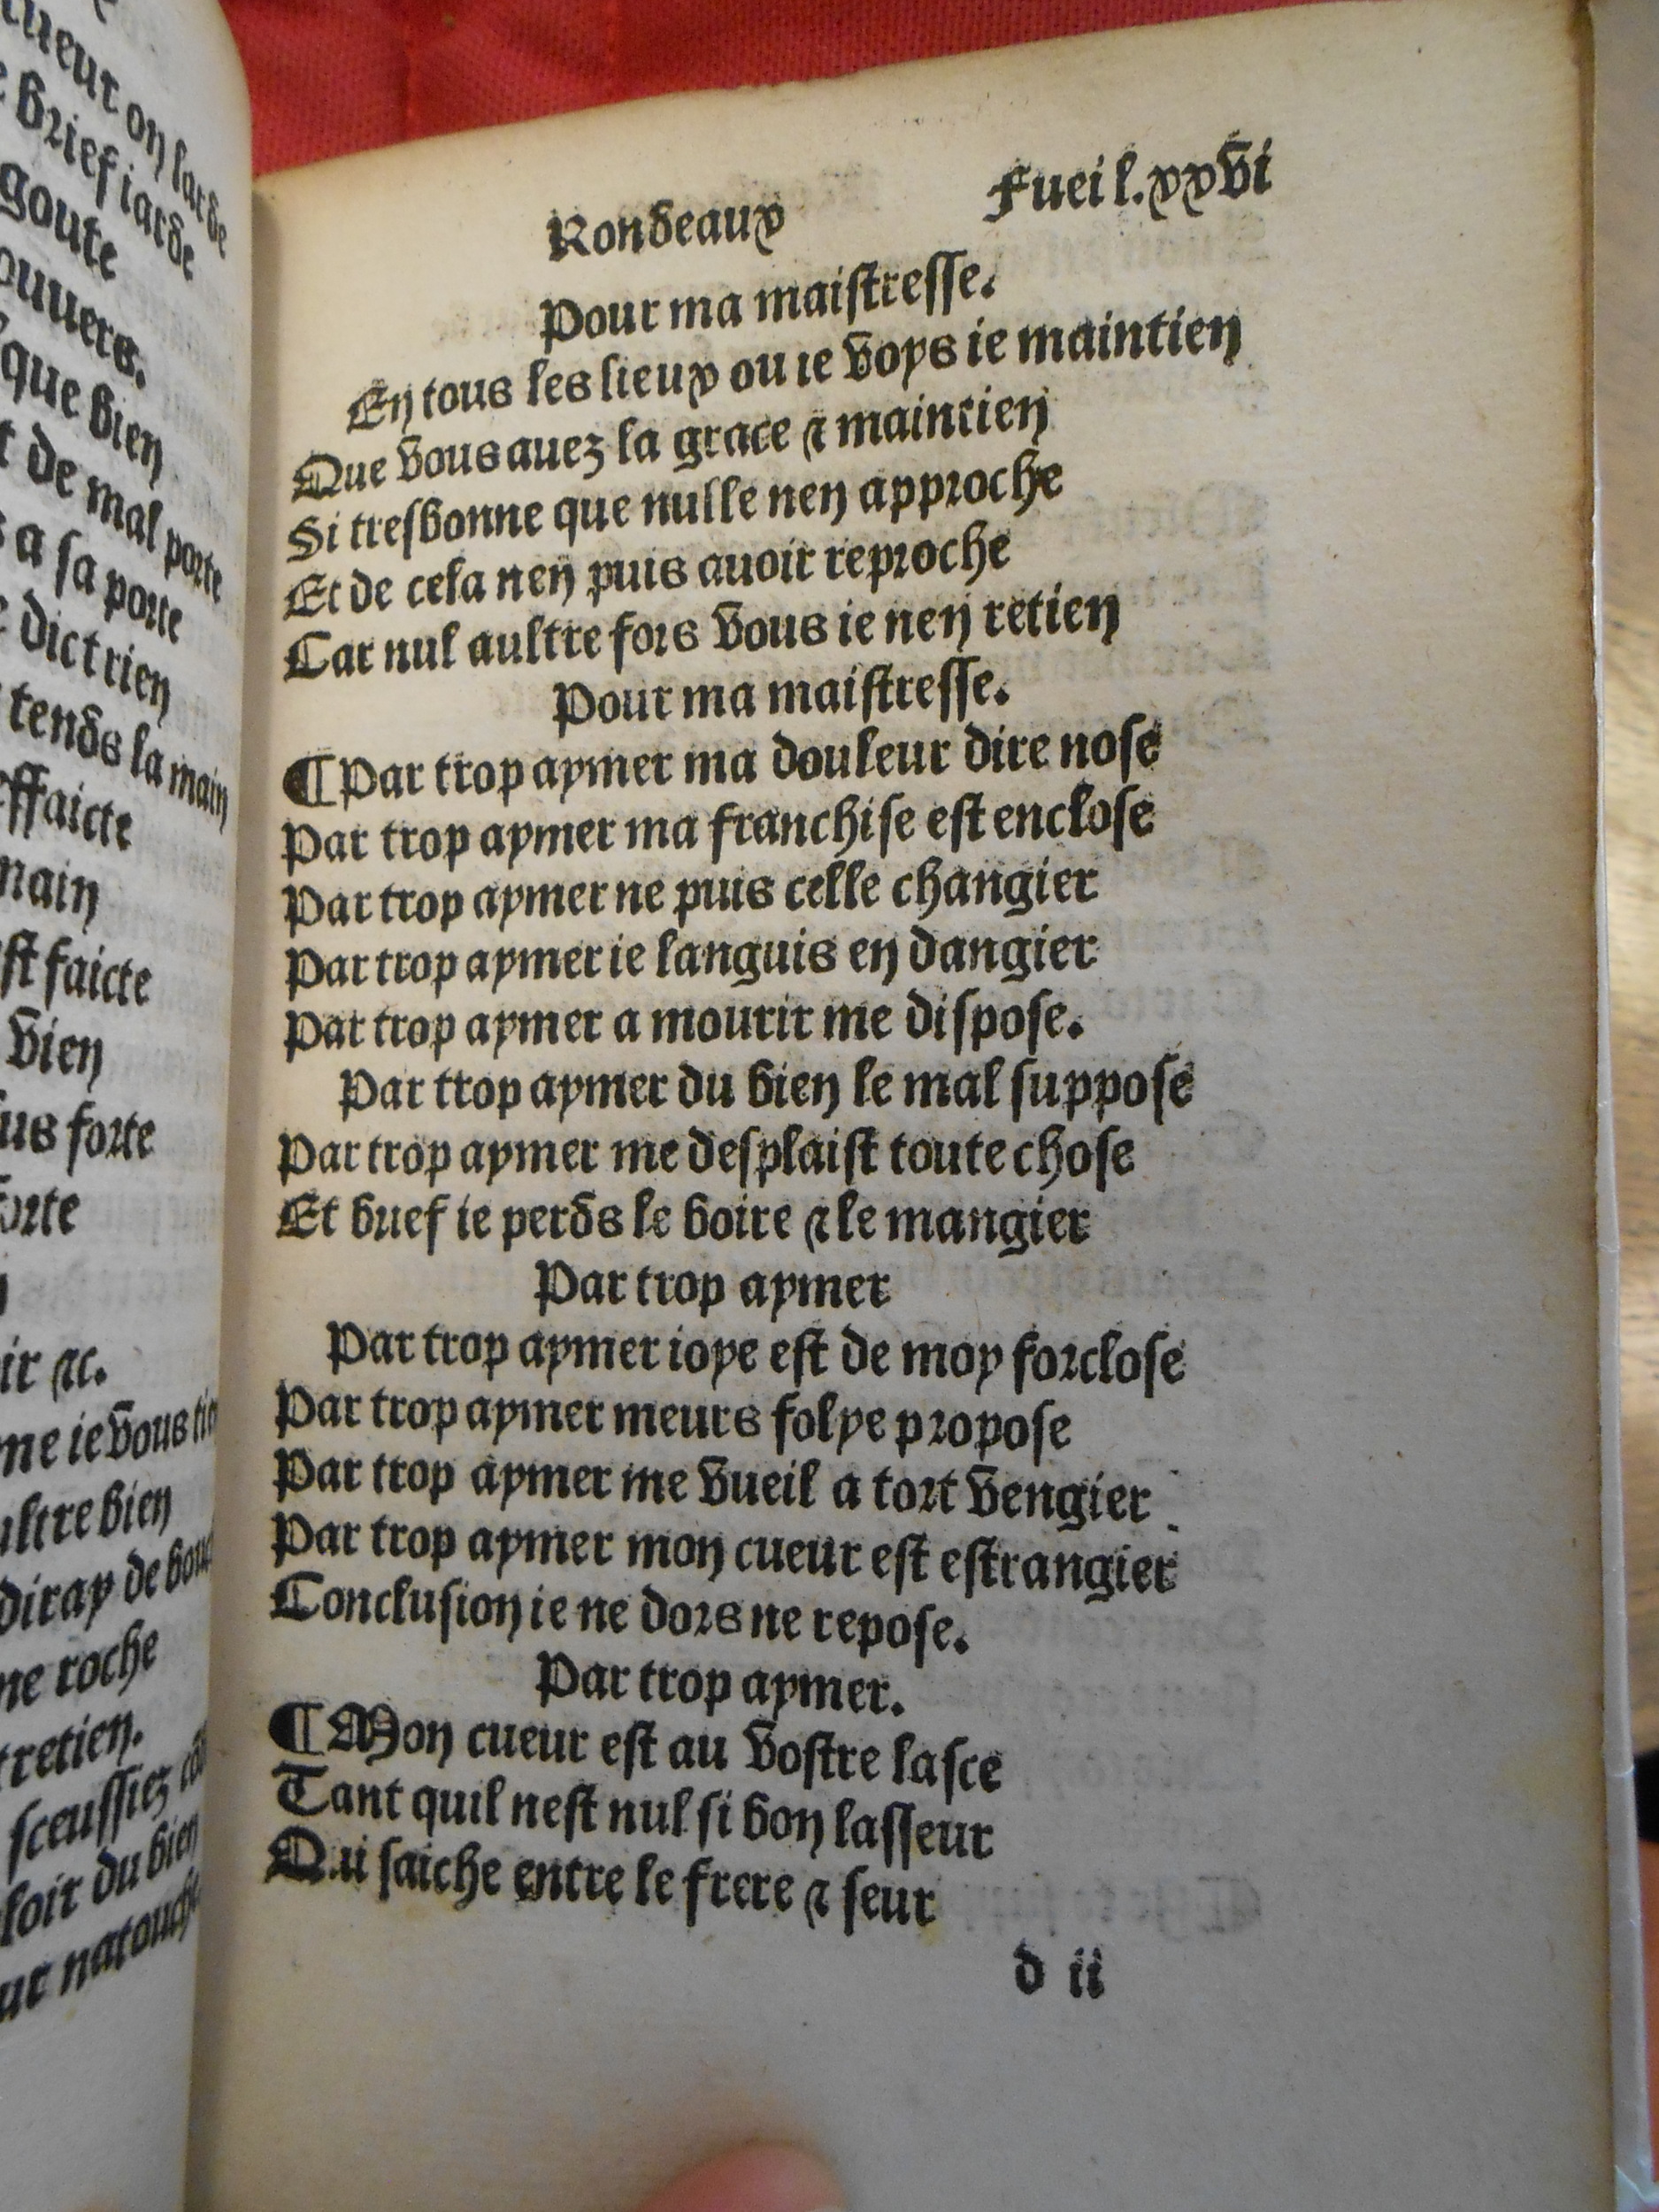 ueur on larde
brief iarde
goute
ouuers.
que bien
de mal porte
a sa porte
dict rien
tends la main
effaicte
main
st faicte
vien
us forte
orte
ir &c.
me ie vous
ultre bien
diray de
ne roche
tretien.
sceussiez
loir du bien
Rondeaux Fueil. xxvi
Pour ma maistresse.
En tous les lieux ou ie voys ie maintien
Que vous auez la grace & maintien
Si tresbonne que nulle nen approche
Et de cela nen puis auoir reproche
Car nul aultre fors vous ie nen retien
Pour ma maistresse.
¶ Par trop aymer ma douleur dire nose
Par trop aymer ma franchise est enclose
Par trop aymer ne puis celle changier
Par trop aymer ie languis en dangier
Par trop aymer a mourir me dispose.
Par trop aymer du bien le mal suppose
Par trop aymer me desplaist toute chose
Et brief ie perds le boire & le mangier
Par trop aymer
Par trop aymer ioye est de moy forclose
Par trop aymer meurs folye propose
Par trop aymer me vueil a tort vengier
Par trop aymer mon cueur est estrangier
Conclusion ie ne dors ne repose.
Par trop aymer.
¶ Mon cueur est au vostre lasce
Tant quil nest nul si bon lasseur
Qui saiche entre le frere & seur
d ii